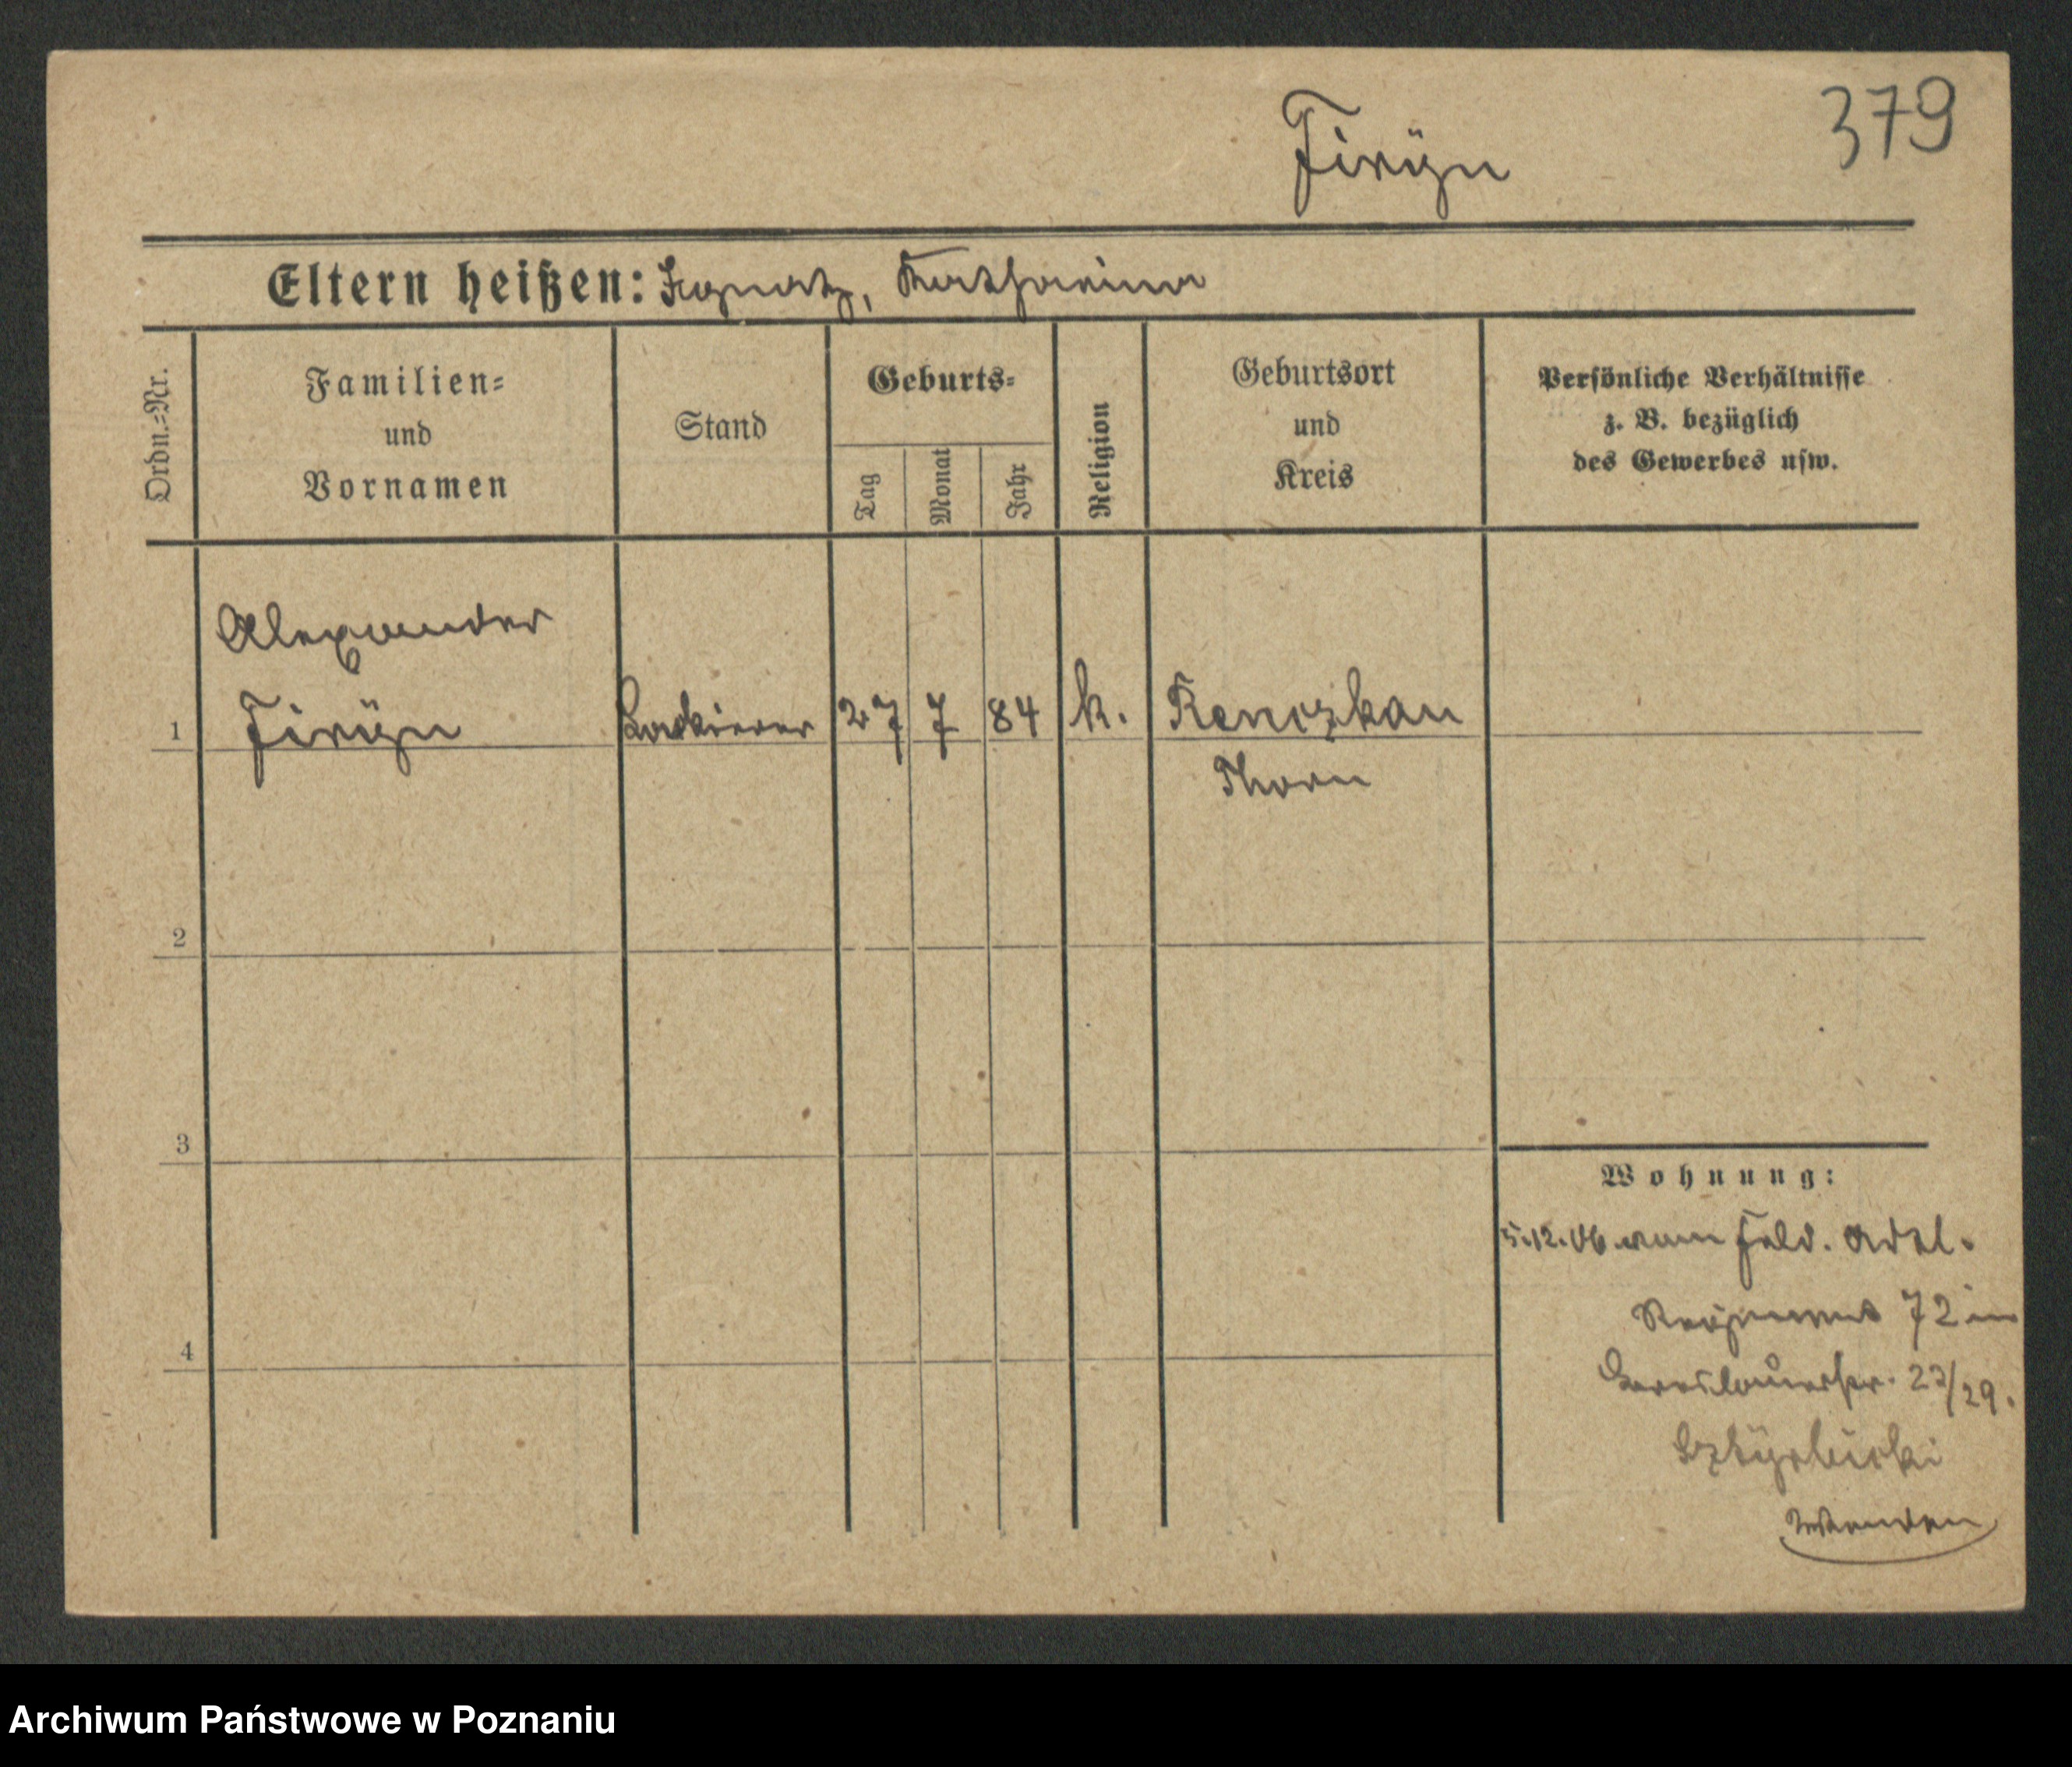 379
Firÿn
Eltern heißen: Ignatz, Katharina
Ordn.=Nr.
Familien=
und
Vornamen
Stand
Geburts=
Tag
Monat
Jahr
Religion
Geburtsort
und
Kreis
Persönliche Verhältnisse
z. B. bezüglich
des Gewerbes usw.
Alexander
1 Firÿn Lackierer 27 7 84 k. Renczkau
Thorn
2
3
4
Wohnung:
5.12.06 vom Feld. Artl.
Regiment 72 in
Breslauerstr. /29.
Wenden
Archiwum Państwowe w Poznaniu